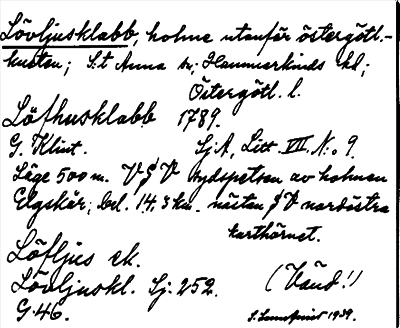 Lövljusklabb, holme utanför östergötl.-
kusten; S:t Anna sn, Hammarkinds hd;
Östergötl. l.
Löfhusklabb 1789.
G. Klint. Sj.A, Litt VII, N:o 9.
Läge 500 m. V sydspetsen av holmen
Elgskär, bel. 14,3 km. nästan V nordöstra
karthörnet.
Löfljus ek.
Lövljuskl. Sj: 252. (Vänd!)
G:46. 1939.